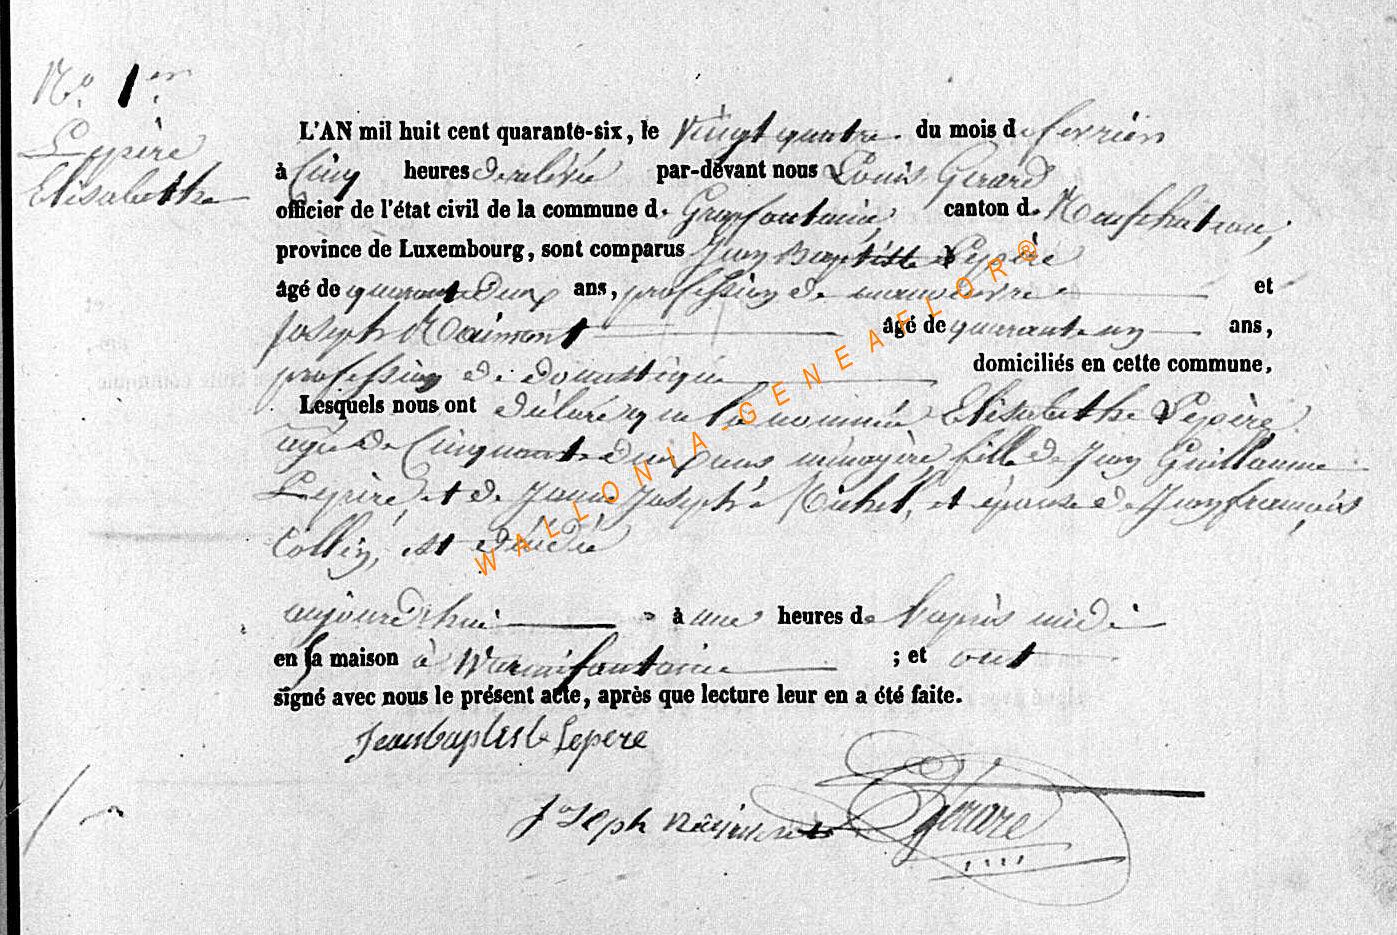 No. 1er
Lepère
Elisabethe
L'AN mil huit cent quarante-six, le vingt quatre du mois de fevrier
à Cinq heures de relévée par-dévant nous Louis Gerard
officier de l'état civil de la commune de Grapfontaine, canton de Neufchateau,
province de Luxembourg, sont comparus Jean Baptiste Lepère
âgé de quarante deux ans, profession de manœuvre et
Joseph Naimont âgé de quarante un ans,
profession de domestique domiciliés en cette commune.
Lesquels nous ont déclaré que la nommée Elisabethe Lepère
agée de Cinquante deux ans menagère fille de Jean Guillaume
Lepère, et de Jeanne Josephe Michel, et épouse de Jean françois
Collin, est décédée
aujourd'hui à une heures de l'après midi
en sa maison à Warmifontaine ; et ont
signé avec nous le présent acte, après que lecture leur en a été faite.
Jeanbaptiste Lepere
Joseph
Gerard
WALLONIA-GENEAFLOR®